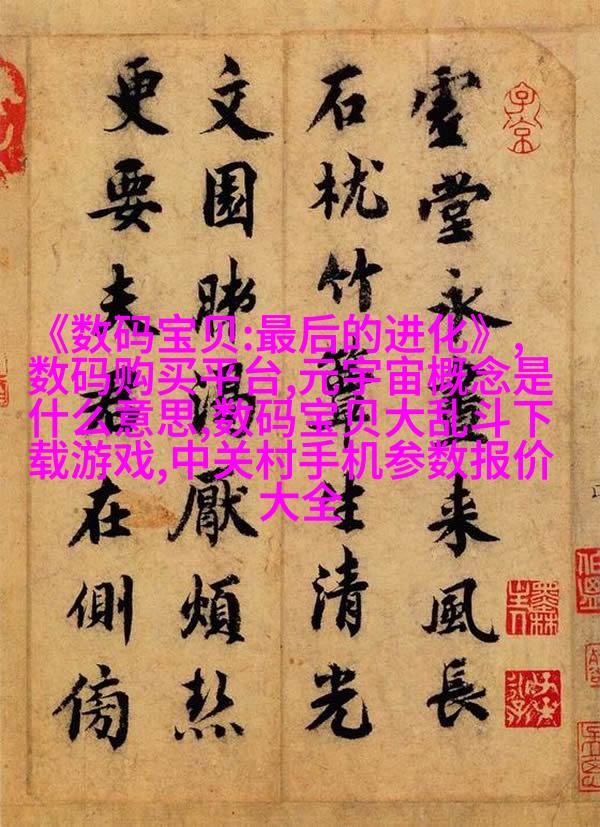 《数码宝贝:最后的进化》,
数码购买平台,元宇宙概念是
什么意思,数码宝贝大乱斗下
载游戏,中关村手机参数报价
大全
堂永来風長
石枕竹簟生清光
文園肺渴厭煩熱
更要夫在側傍